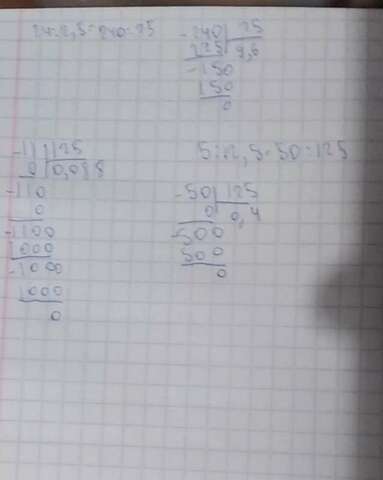 24:2,5=240:25
-240 25
225 9,6
-150
150
0
-11 125
0 0,088
-110
0
-1100
1000
-1000
1000
0
5:12,5=50:125
-50 125
0 0,4
-500
500
0